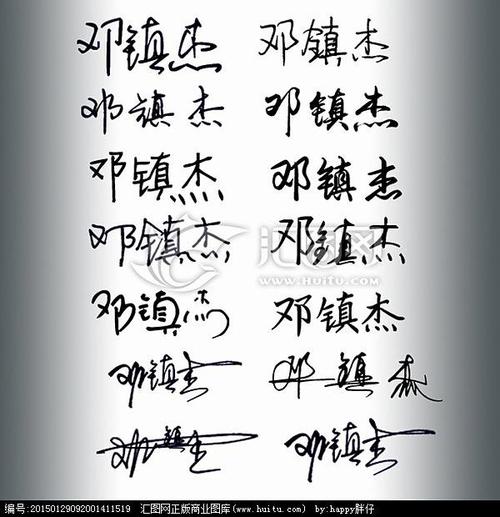 邓镇杰 邓镇杰
邓镇杰 邓镇杰
邓镇杰 邓镇杰
邓镇杰 邓镇杰
邓镇杰 邓镇杰
邓镇杰 邓镇杰
邓镇杰 邓镇杰
汇图网
www.huitu.com
编号:20150129092001411519 汇图网正版商业图库(www.huitu.com) by:happy胖仔